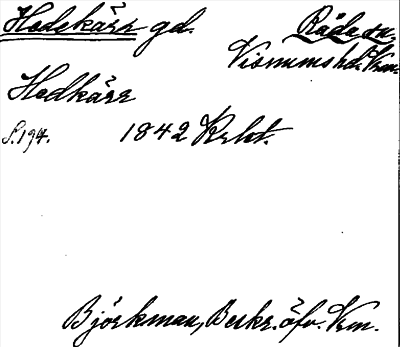 Hedekärr gd. Råda sn,
Visnums hd. Vrm.
Hedkärr
S. 194. 1842 Krbt.
Björkman, Beskr. öfv. Vrm.